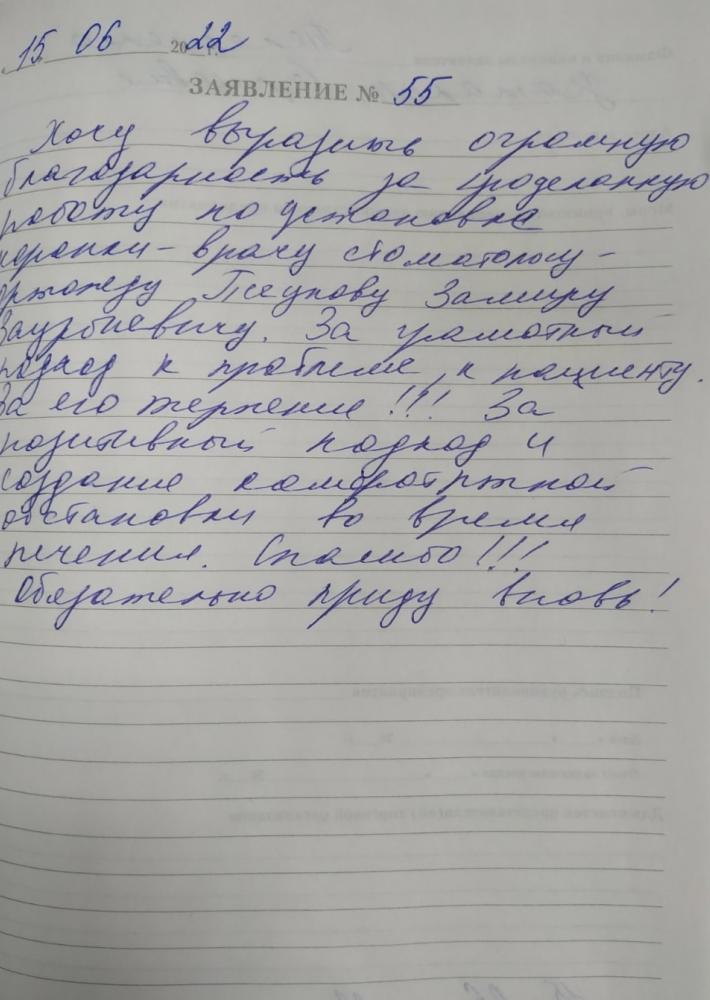 15 06 2022 г.
ЗАЯВЛЕНИЕ № 55
Хочу выразить огромную
благодарность за проделанную
работу по установке
коронки - врачу стоматологу -
ортопеду Псеунову Замиру
Заурбиевичу. За грамотный
подход к проблеме, к пациенту.
За его терпение!!! За
позитивный подход и
создание комфортной
обстановки во время
лечения. Спасибо!!!
Обязательно приду вновь!